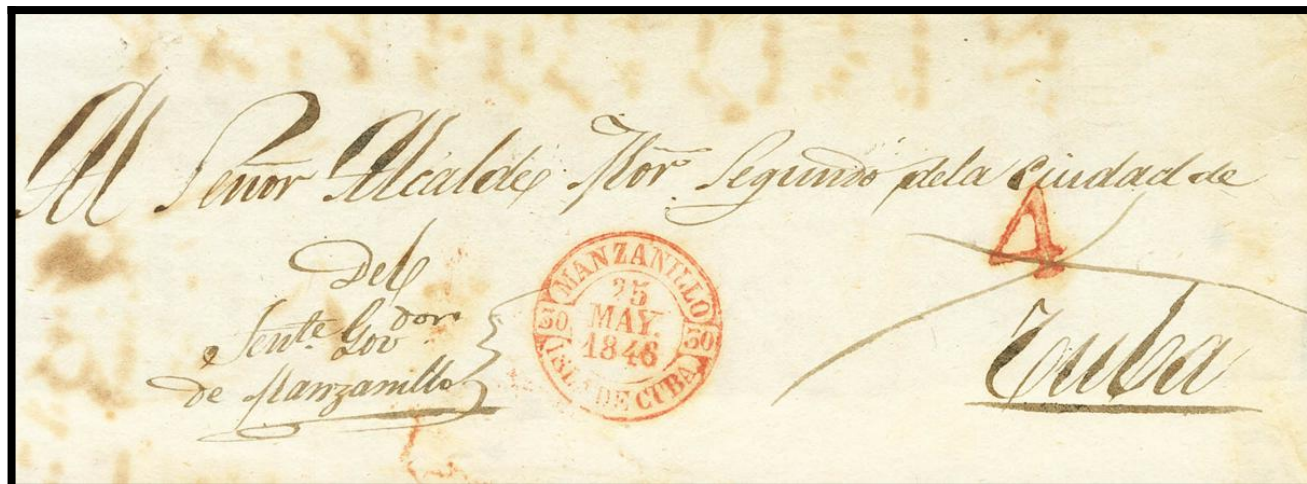 Al Señor Alcalde Mor Segundo dela Ciudad de
Cuba
Del
Tente Govdor
de Manzanillo
MANZANILLO
25
MAY.
1846
30 30
ISLA DE CUBA
4